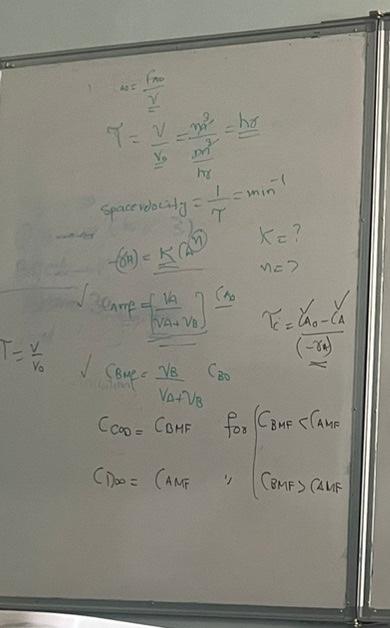 = FA0 / V
τ = V / v0 = m³ / (m³ / hr) = hr
space velocity = 1 / τ = min⁻¹
-(rA) = K CA^n K = ?
n = ?
✓ CAMF = [VA / (VA + VB)] CA0
τc = (CA0 - CA) / (-rA)
τ = V / v0
✓ CBMF = VB / (VA + VB) CB0
CC∞ = CBMF for CBMF < CAMF
CD∞ = CAMF " CBMF > CAMF